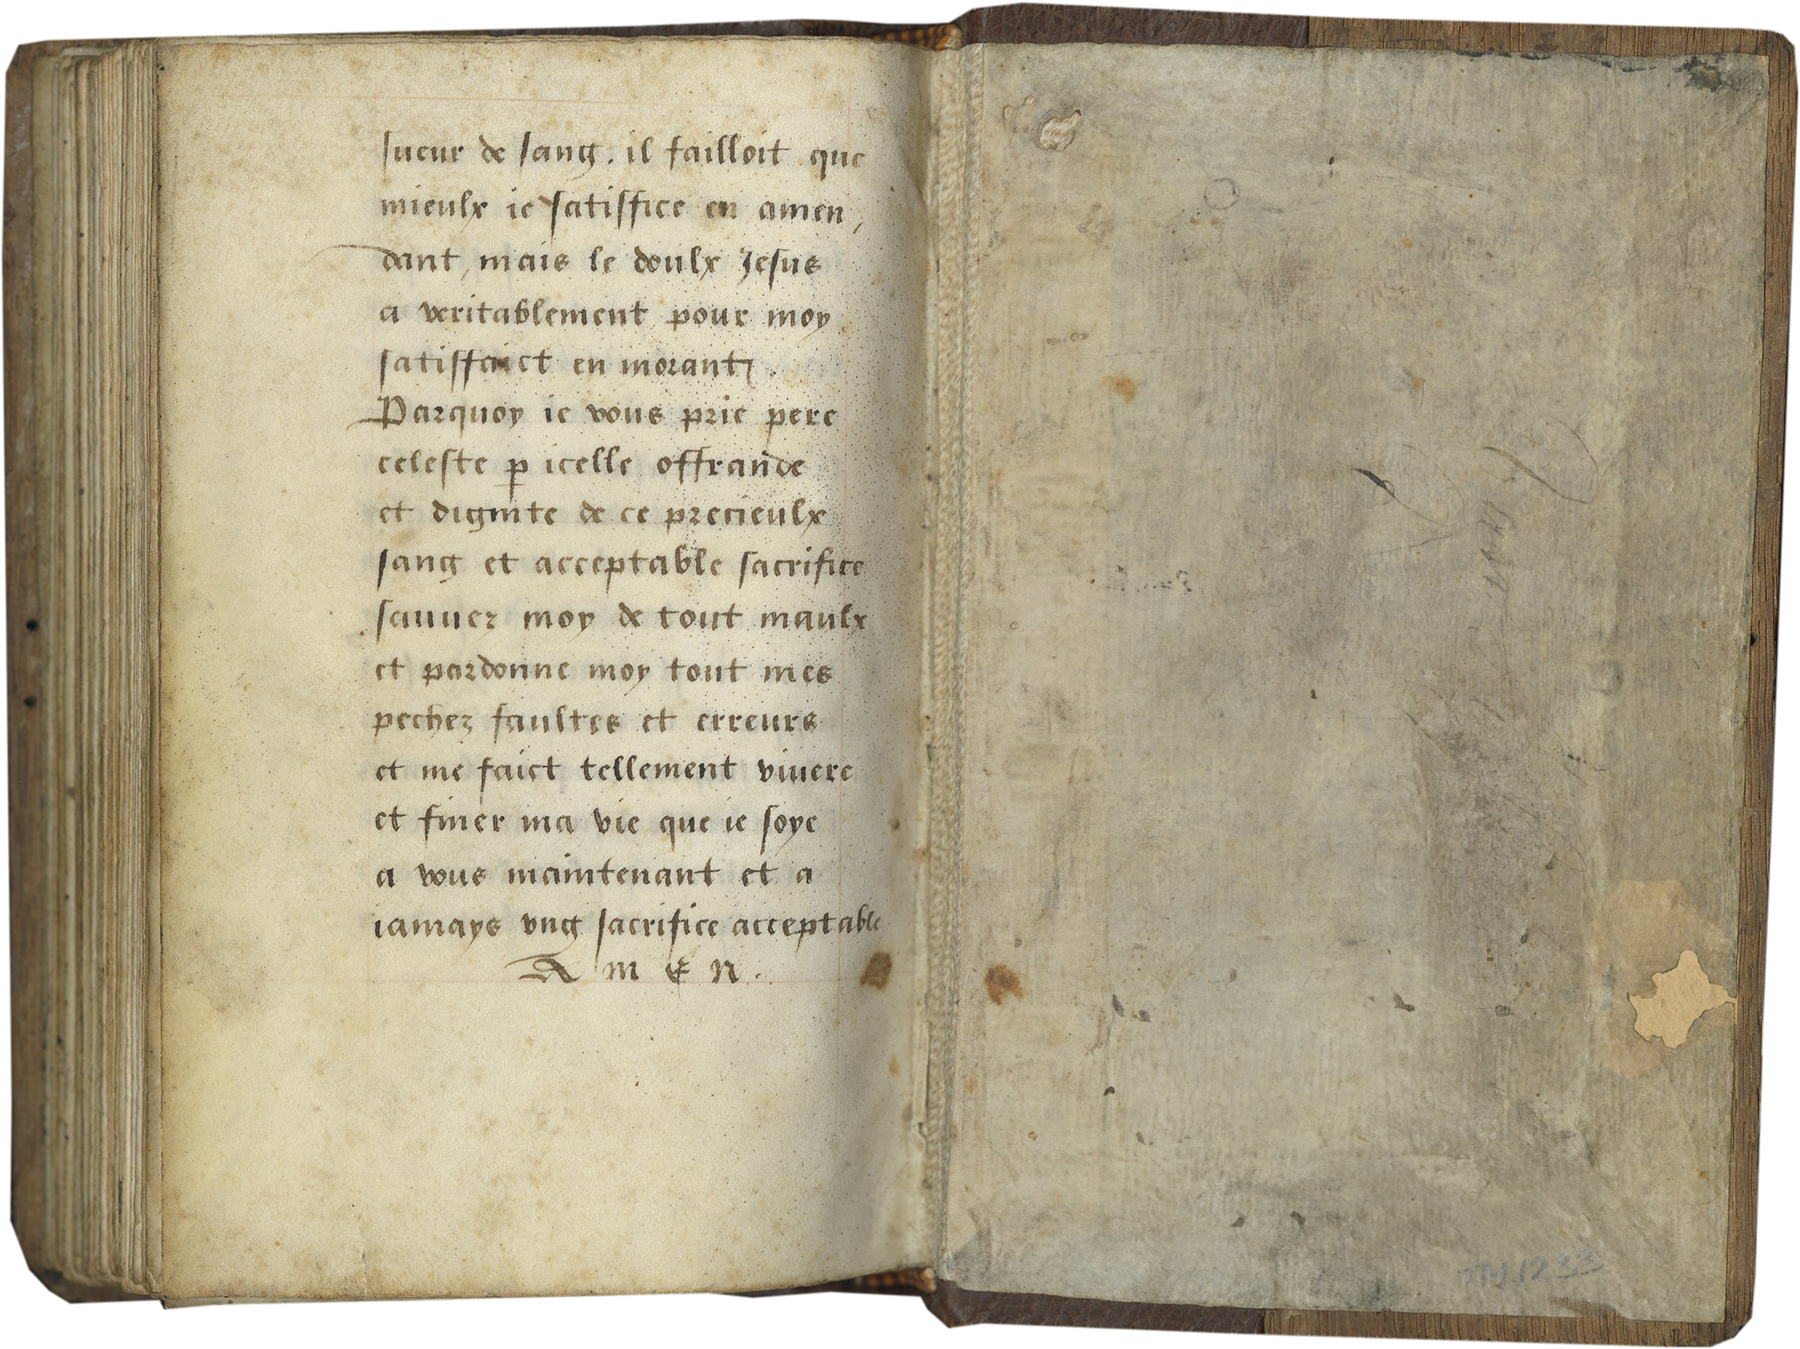 sueur de sang. il failloit que
mieulx ie satisffice en amen,
dant, mais le doulx Jesus
a veritablement pour moy
satisffaict en morant.
Parquoy ie vous prie pere
celeste p icelle offrande
et dignite de ce precieulx
sang et acceptable sacrifice
sauuez moy de tout maulx
et pardonne moy tout mes
pechez faultes et erreurs
et me faict tellement viuere
et finer ma vie que ie soye
a vous maintenant et a
iamays vng sacrifice acceptable
A m E n.